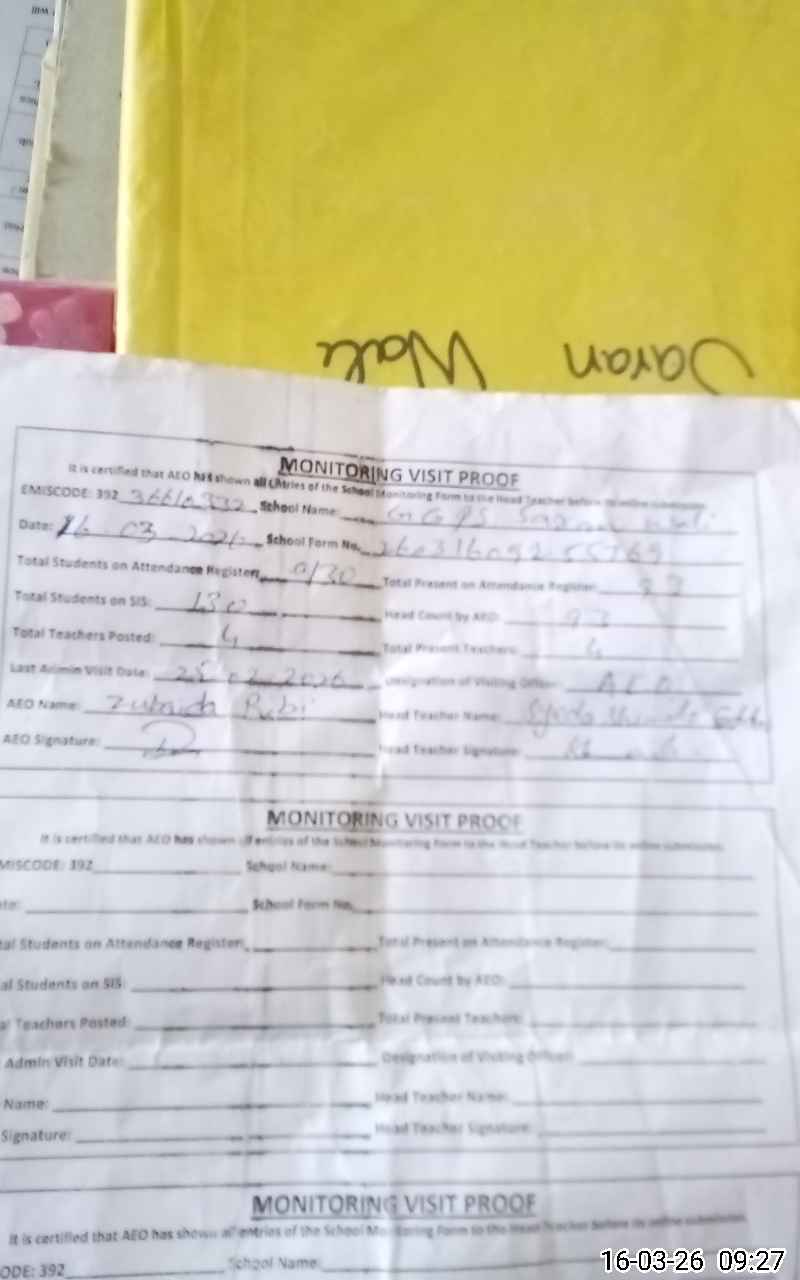 Saran Wali
MONITORING VISIT PROOF
It is certified that AEO has shown all entries of the School Monitoring Form to the Head Teacher before its online submission.
EMISCODE: 392 School Name: GGPS
Date: 16-03-2026 School Form No.
Total Students on Attendance Register: 130 Total Present on Attendance Register: 93
Total Students on SIS: 130 Head Count by AEO: 93
Total Teachers Posted: 4 Total Present Teachers: 4
Last Admin Visit Date: 25-02-2026 Designation of Visiting Officer: AEO
AEO Name: Zubaida Bibi Head Teacher Name: Syeda
AEO Signature: Head Teacher Signature:
MONITORING VISIT PROOF
It is certified that AEO has shown all entries of the School Monitoring Form to the Head Teacher before its online submission.
MISCODE: 392 School Name:
te: School Form No.
tal Students on Attendance Register: Total Present on Attendance Register:
al Students on SIS: Head Count by AEO:
al Teachers Posted: Total Present Teachers:
Admin Visit Date: Designation of Visiting Officer:
Name: Head Teacher Name:
Signature: Head Teacher Signature:
MONITORING VISIT PROOF
It is certified that AEO has shown all entries of the School Monitoring Form to the Head Teacher before its online submission.
ODE: 392 School Name:
16-03-26 09:27